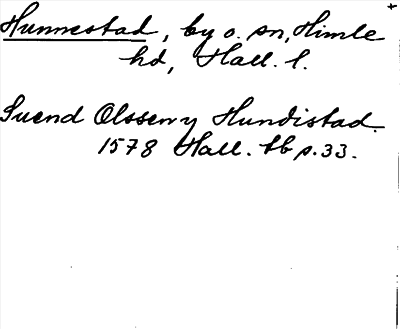 Hunnestad, by o. sn, Himle
hd, Hall. l.
Suend Olssen y Hundistad.
1578 Hall. tb p. 33.